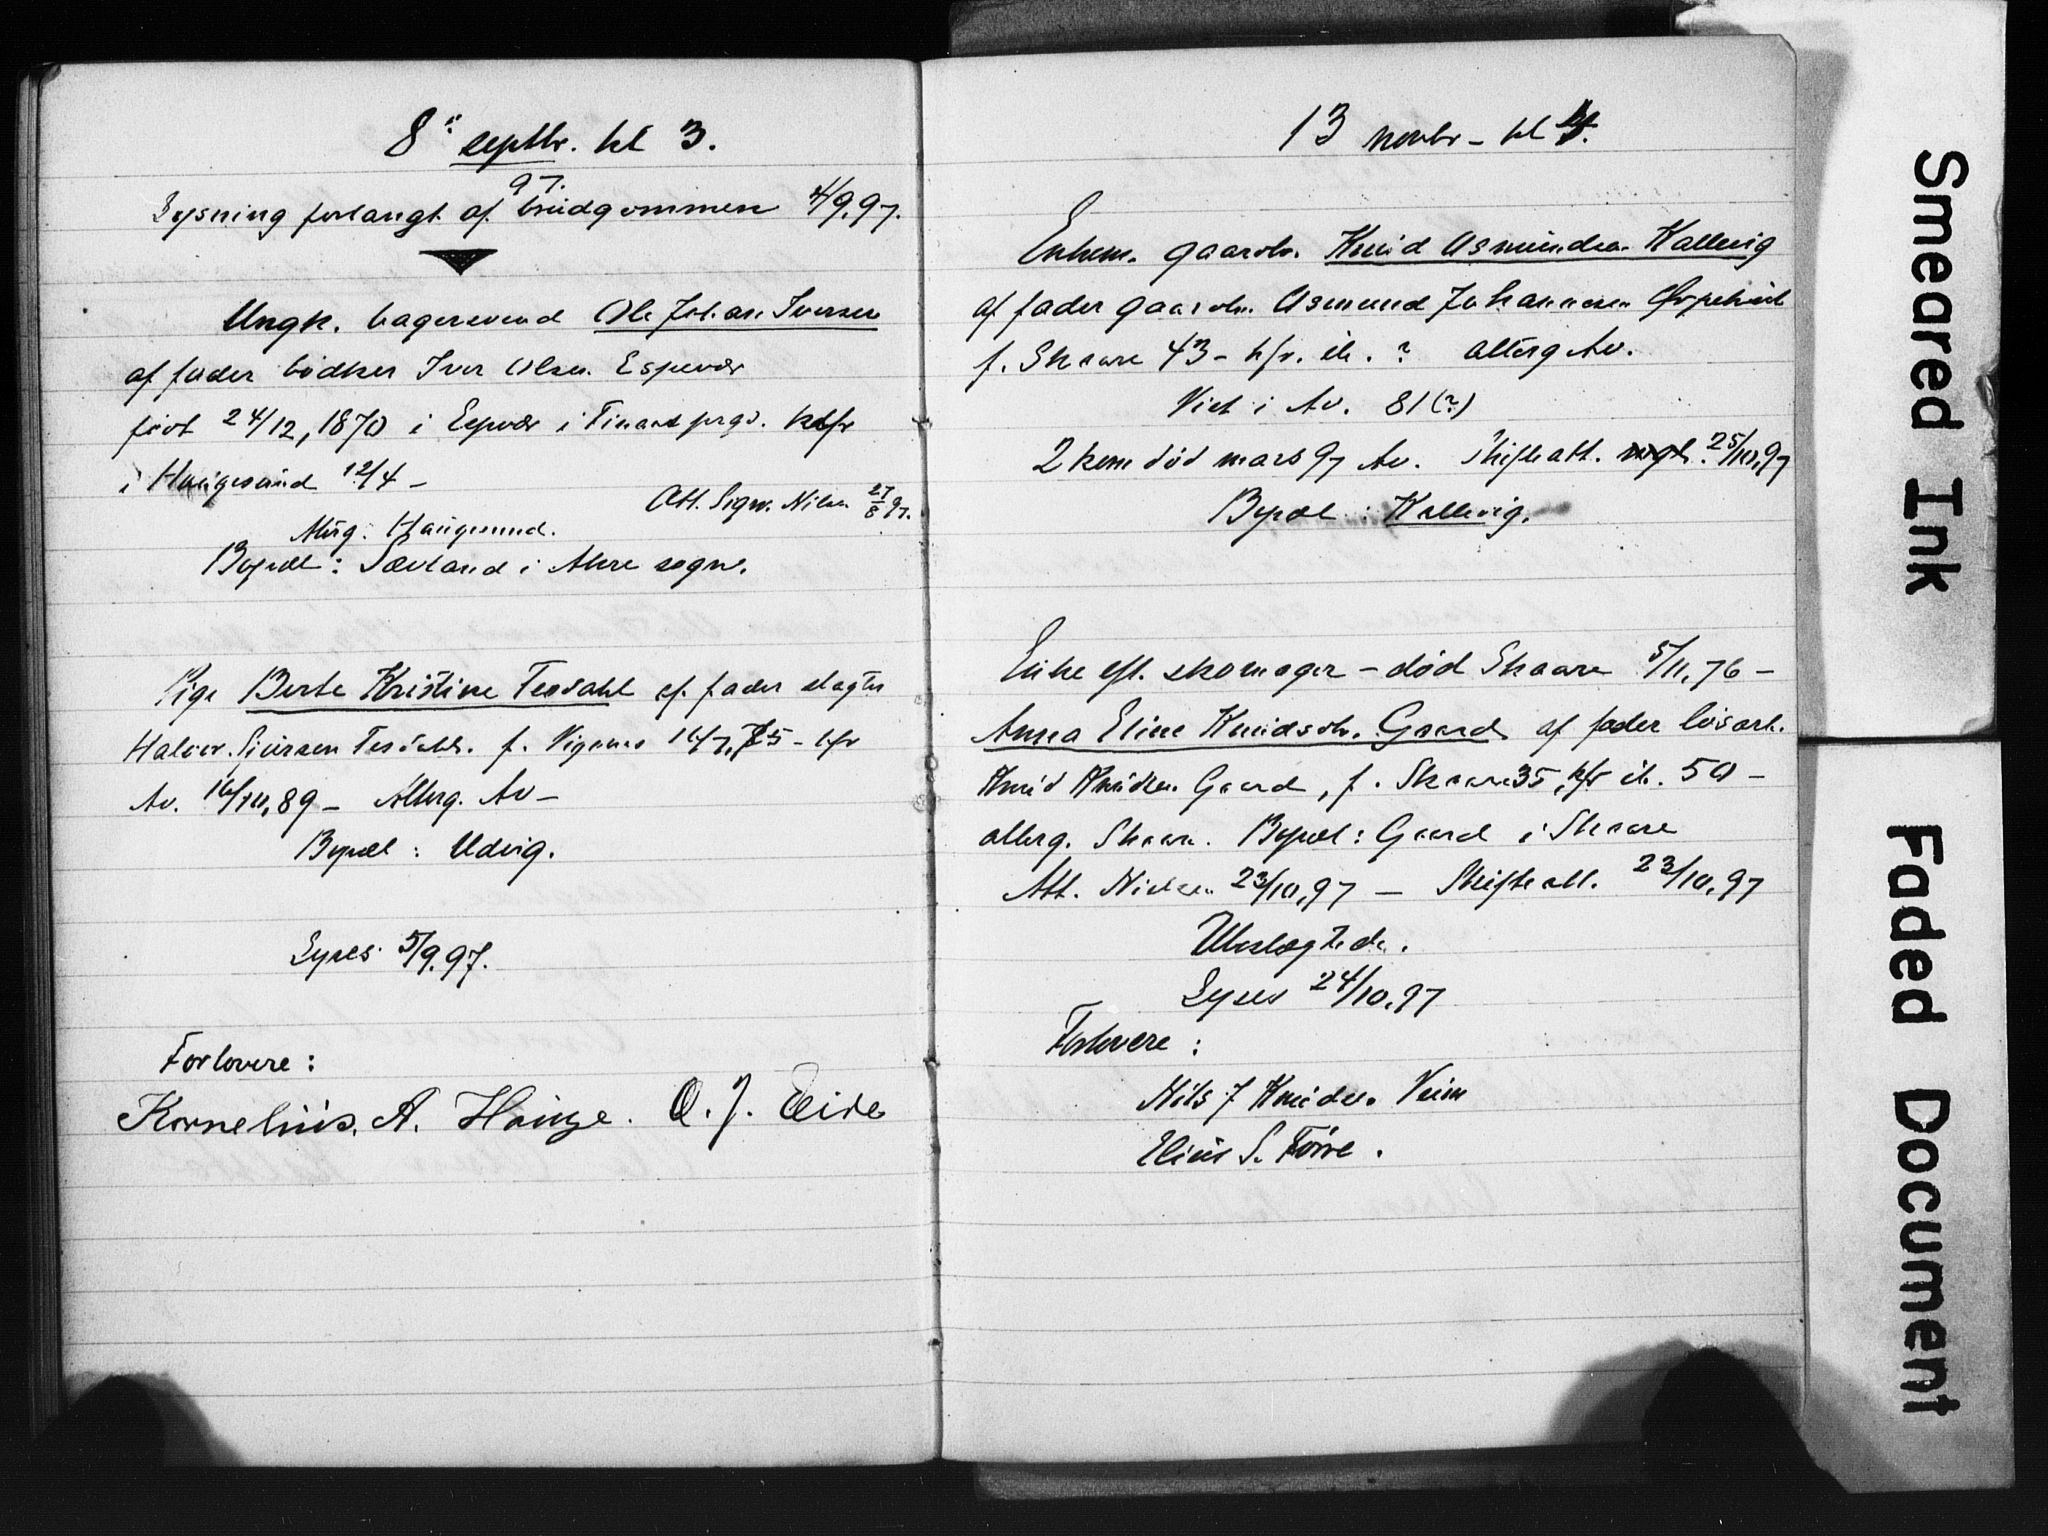 8de septbr. kl 3.
97.
Lysning forlangt af brudgommen 4/9.97.
Ungk. bagersvend Ole Johan Iversen
af fader bødker Iver Olsen Espevær
født 24/12, 1870 i Espevær i Finaas prgd. kfr
i Haugesund 12/4 –
Att. Sogn. Nilsen 27/8 97.
Alterg. Haugesund.
Bopæl: Sævland i Akre sogn.
Pige Berte Kristine Tesdahl af fader slagter
Halvor Sjursen Tesdahl. f. Vignæs 16/7, 75 – kfr
Av. 16/10, 89 – Alterg. Av –
Bopæl: Udvig.
Lyses 5/9.97.
Forlovere:
Kornelius. A. Hauge. O. J. Eide
13 novbr – kl 4.
Enkem. gaardbr. Knud Asmundsen Kallevig
af fader gaardbr. Asmund Johannesen
f. Skaare 43 – kfr. ib. ? alterg Av.
Viet i Av. 81 (?)
2 kone død mars 97 Av. Skifteatt. 25/10, 97
Bopæl: Kallevig.
Enke eft. skomager – død Skaare 5/11, 76 –
Anna Eline Knudsdtr. Gaard af fader løsarb.
Knud Knudsen Gaard, f. Skaare 35, kfr ib. 50 –
alterg. Skaare. Bopæl: Gaard i Skaare
Att. Nielsen 23/10, 97 – Skifteatt. 23/10, 97
Ubeslægtede.
Lyses 24/10, 97
Forlovere:
Nils J Knudsen Veim
Elius S. Førre.
Smeared Ink
Faded Document